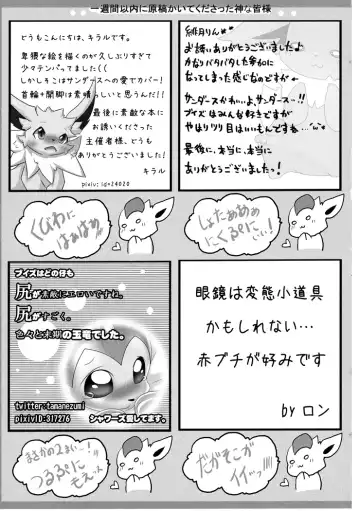 一週間以内に原稿かいてくださった神な皆様
どうもこんにちは、キラルです。
卑猥な絵を描くのが久しぶりすぎて
少々テンパってました((
しかしそこはサンダースへの愛でカバー!
首輪+開脚は素晴らしいと思うんだ!!
最後に素敵な本に
お誘いくださった
主催者様、どうも
ありがとうございました!
キラル
緋月りん
お誘いありがとうございました♪
かなりバタバタした参加に
なってしまった感じで申し訳ない…
サンダースかわいいよサンダース…!!
ブイズはみんな好きですが
やはりツリ目はいいもんですね
最後に、本当に、本当に
ありがとうございました!
くびわに
はぁはぁ
しょたぁぁぁぁ
ブイズはどの仔も
尻が素敵にエロいですね。
尻がすごく。
色々と末期の玉竜でした。
twitter:tamanezumi
pixivID:317276
シャワーズ愛してます。
眼鏡は変態小道具
かもしれない…
赤ブチが好みです
by ロン
まさかの2まい…!
つるぷに
もえっ
だがそこが
イイっ!!!!